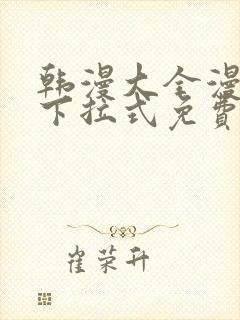 韩漫大全漫
下拉式免费
崔荣升